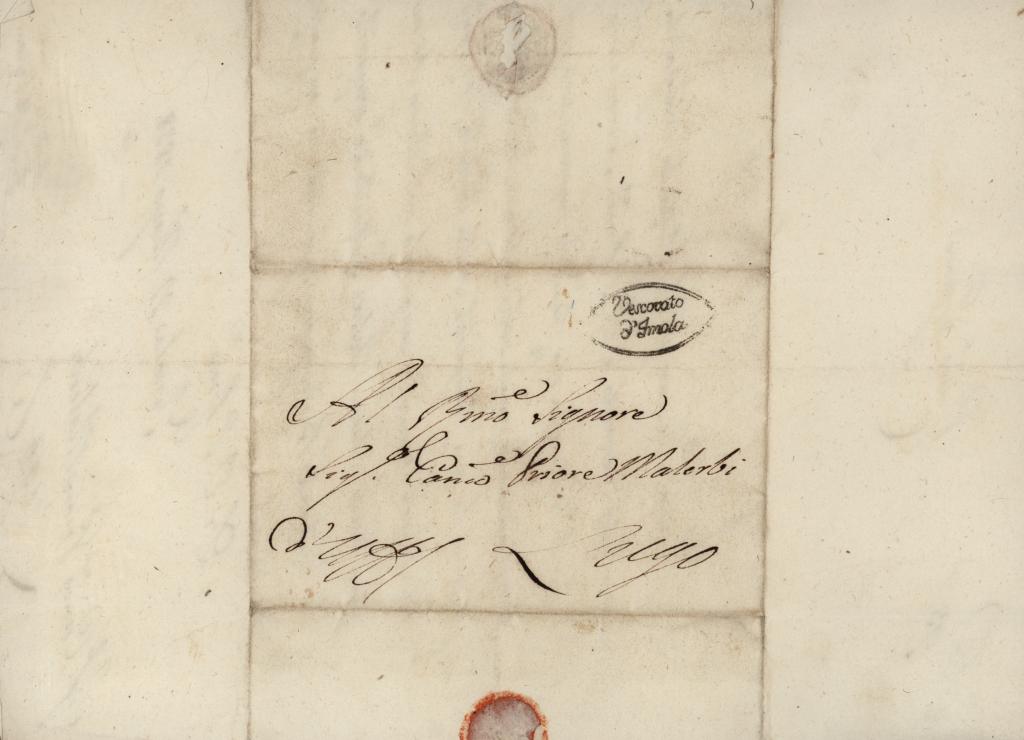 Vescovato
d'Imola
Al Rmo Signore
Sigr. Canco Priore Malerbi
d'Uffo Lugo